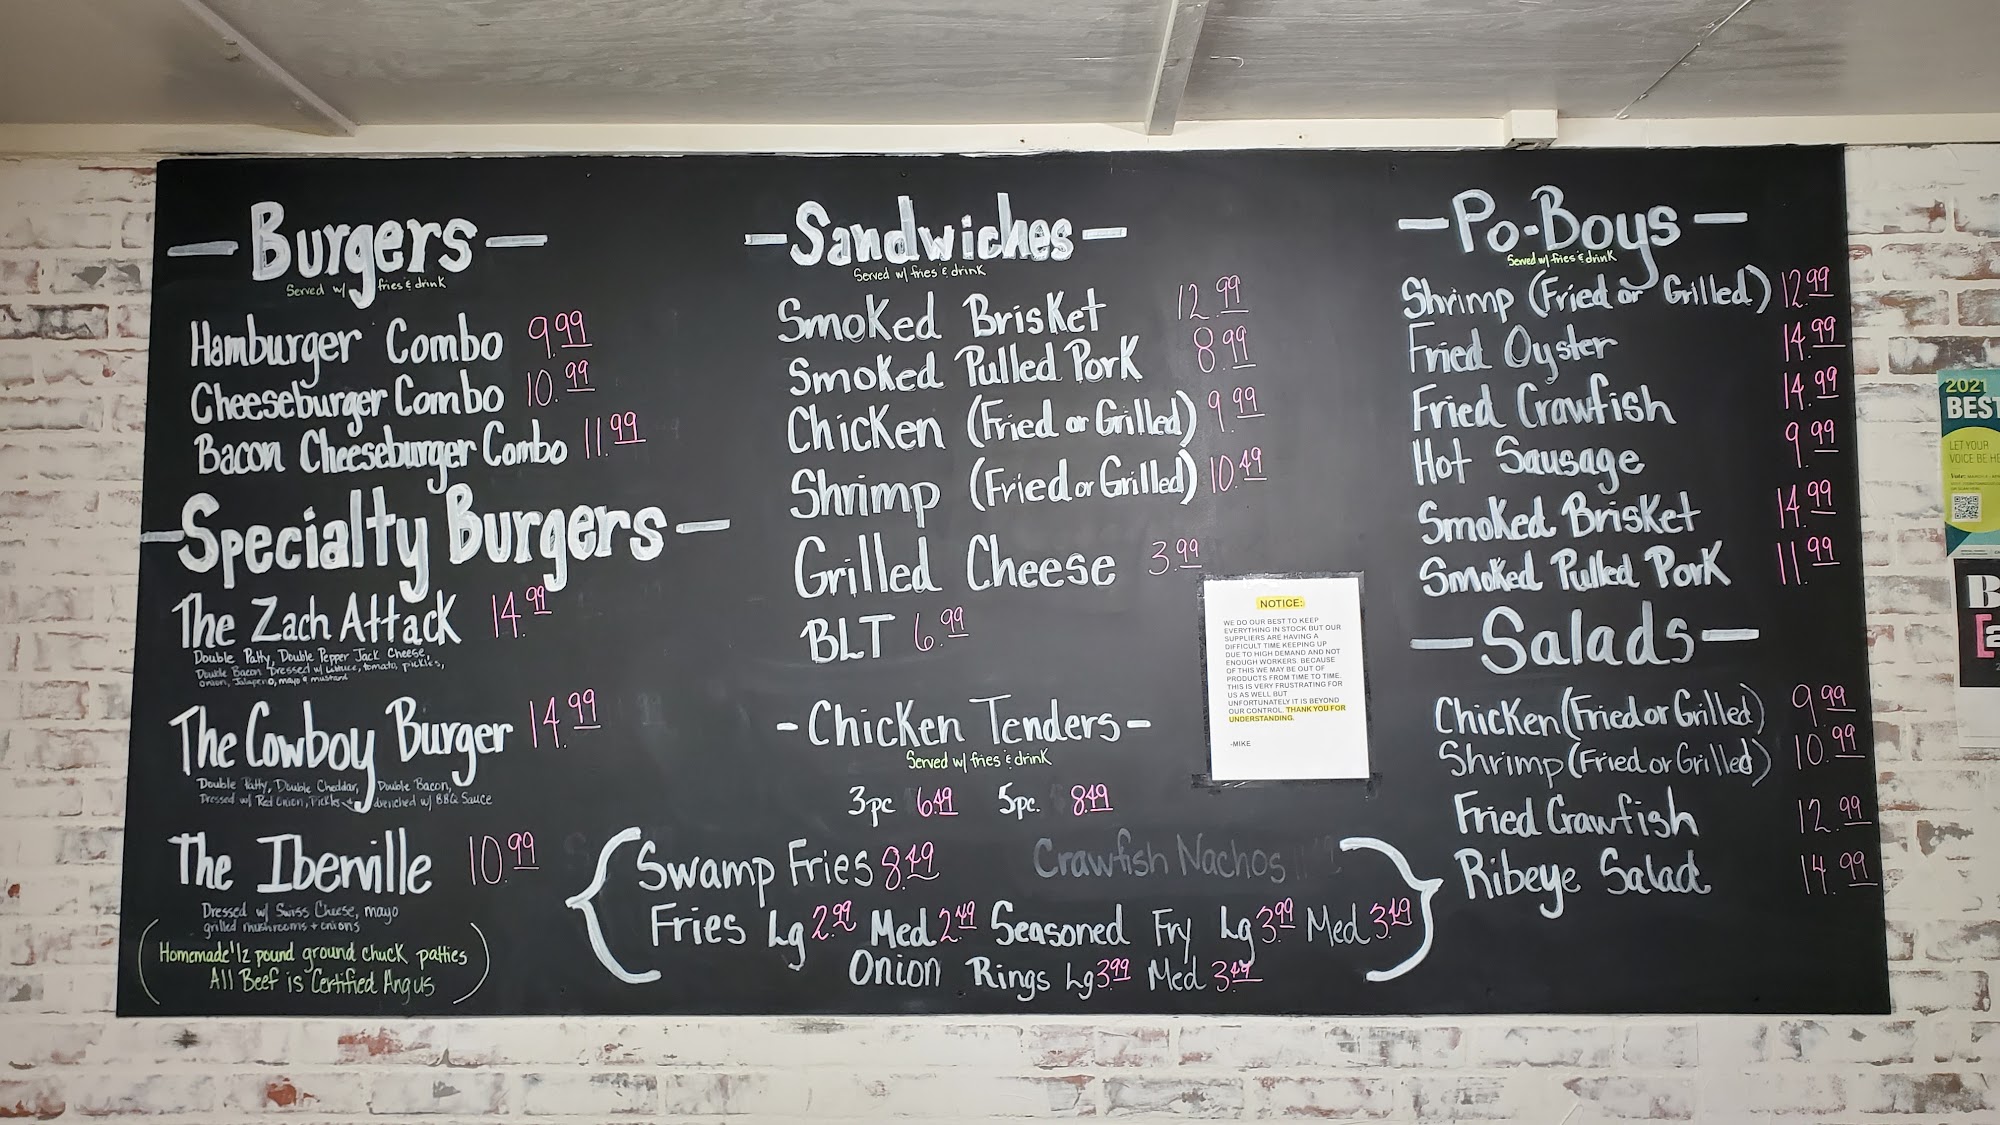 Burgers
Served w/ fries & drink
Hamburger Combo 9.99
Cheeseburger Combo 10.99
Bacon Cheeseburger Combo 11.99
Specialty Burgers
The Zach Attack 14.99
Double Patty, Double Pepper Jack Cheese,
Double Bacon Dressed w/ lettuce, tomato, pickles,
onion, Jalapeno, mayo & mustard
The Cowboy Burger 14.99
Double Patty, Double Cheddar, Double Bacon,
Dressed w/ Red Onion, Pickles + drenched w/ BBQ Sauce
The Iberville 10.99
Dressed w/ Swiss Cheese, mayo
grilled mushrooms + onions
(Homemade 1/2 pound ground chuck patties
All Beef is Certified Angus)
- Sandwiches -
Served w/ fries & drink
Smoked Brisket 12.99
Smoked Pulled Pork 8.99
Chicken (Fried or Grilled) 9.99
Shrimp (Fried or Grilled) 10.49
Grilled Cheese 3.99
BLT 6.99
- Chicken Tenders -
Served w/ fries & drink
3pc 6.49 5pc. 8.49
Swamp Fries 8.49 Crawfish Nachos
Fries Lg 2.99 Med 2.49 Seasoned Fry Lg 3.99 Med 3.49
Onion Rings Lg 3.99 Med 3.49
NOTICE:
WE DO OUR BEST TO KEEP
EVERYTHING IN STOCK BUT OUR
SUPPLIERS ARE HAVING A
DIFFICULT TIME KEEPING UP
DUE TO HIGH DEMAND AND NOT
ENOUGH WORKERS. BECAUSE
OF THIS WE MAY BE OUT OF
PRODUCTS FROM TIME TO TIME.
THIS IS VERY FRUSTRATING FOR
US AS WELL BUT
UNFORTUNATELY IT IS BEYOND
OUR CONTROL. THANK YOU FOR
UNDERSTANDING.
-MIKE
- Po-Boys -
Served w/ fries & drink
Shrimp (Fried or Grilled) 12.99
Fried Oyster 14.99
Fried Crawfish 14.99
Hot Sausage 9.99
Smoked Brisket 14.99
Smoked Pulled Pork 11.99
- Salads -
Chicken (Fried or Grilled) 9.99
Shrimp (Fried or Grilled) 10.99
Fried Crawfish 12.99
Ribeye Salad 14.99
2021
BEST
LET YOUR
VOICE BE HE